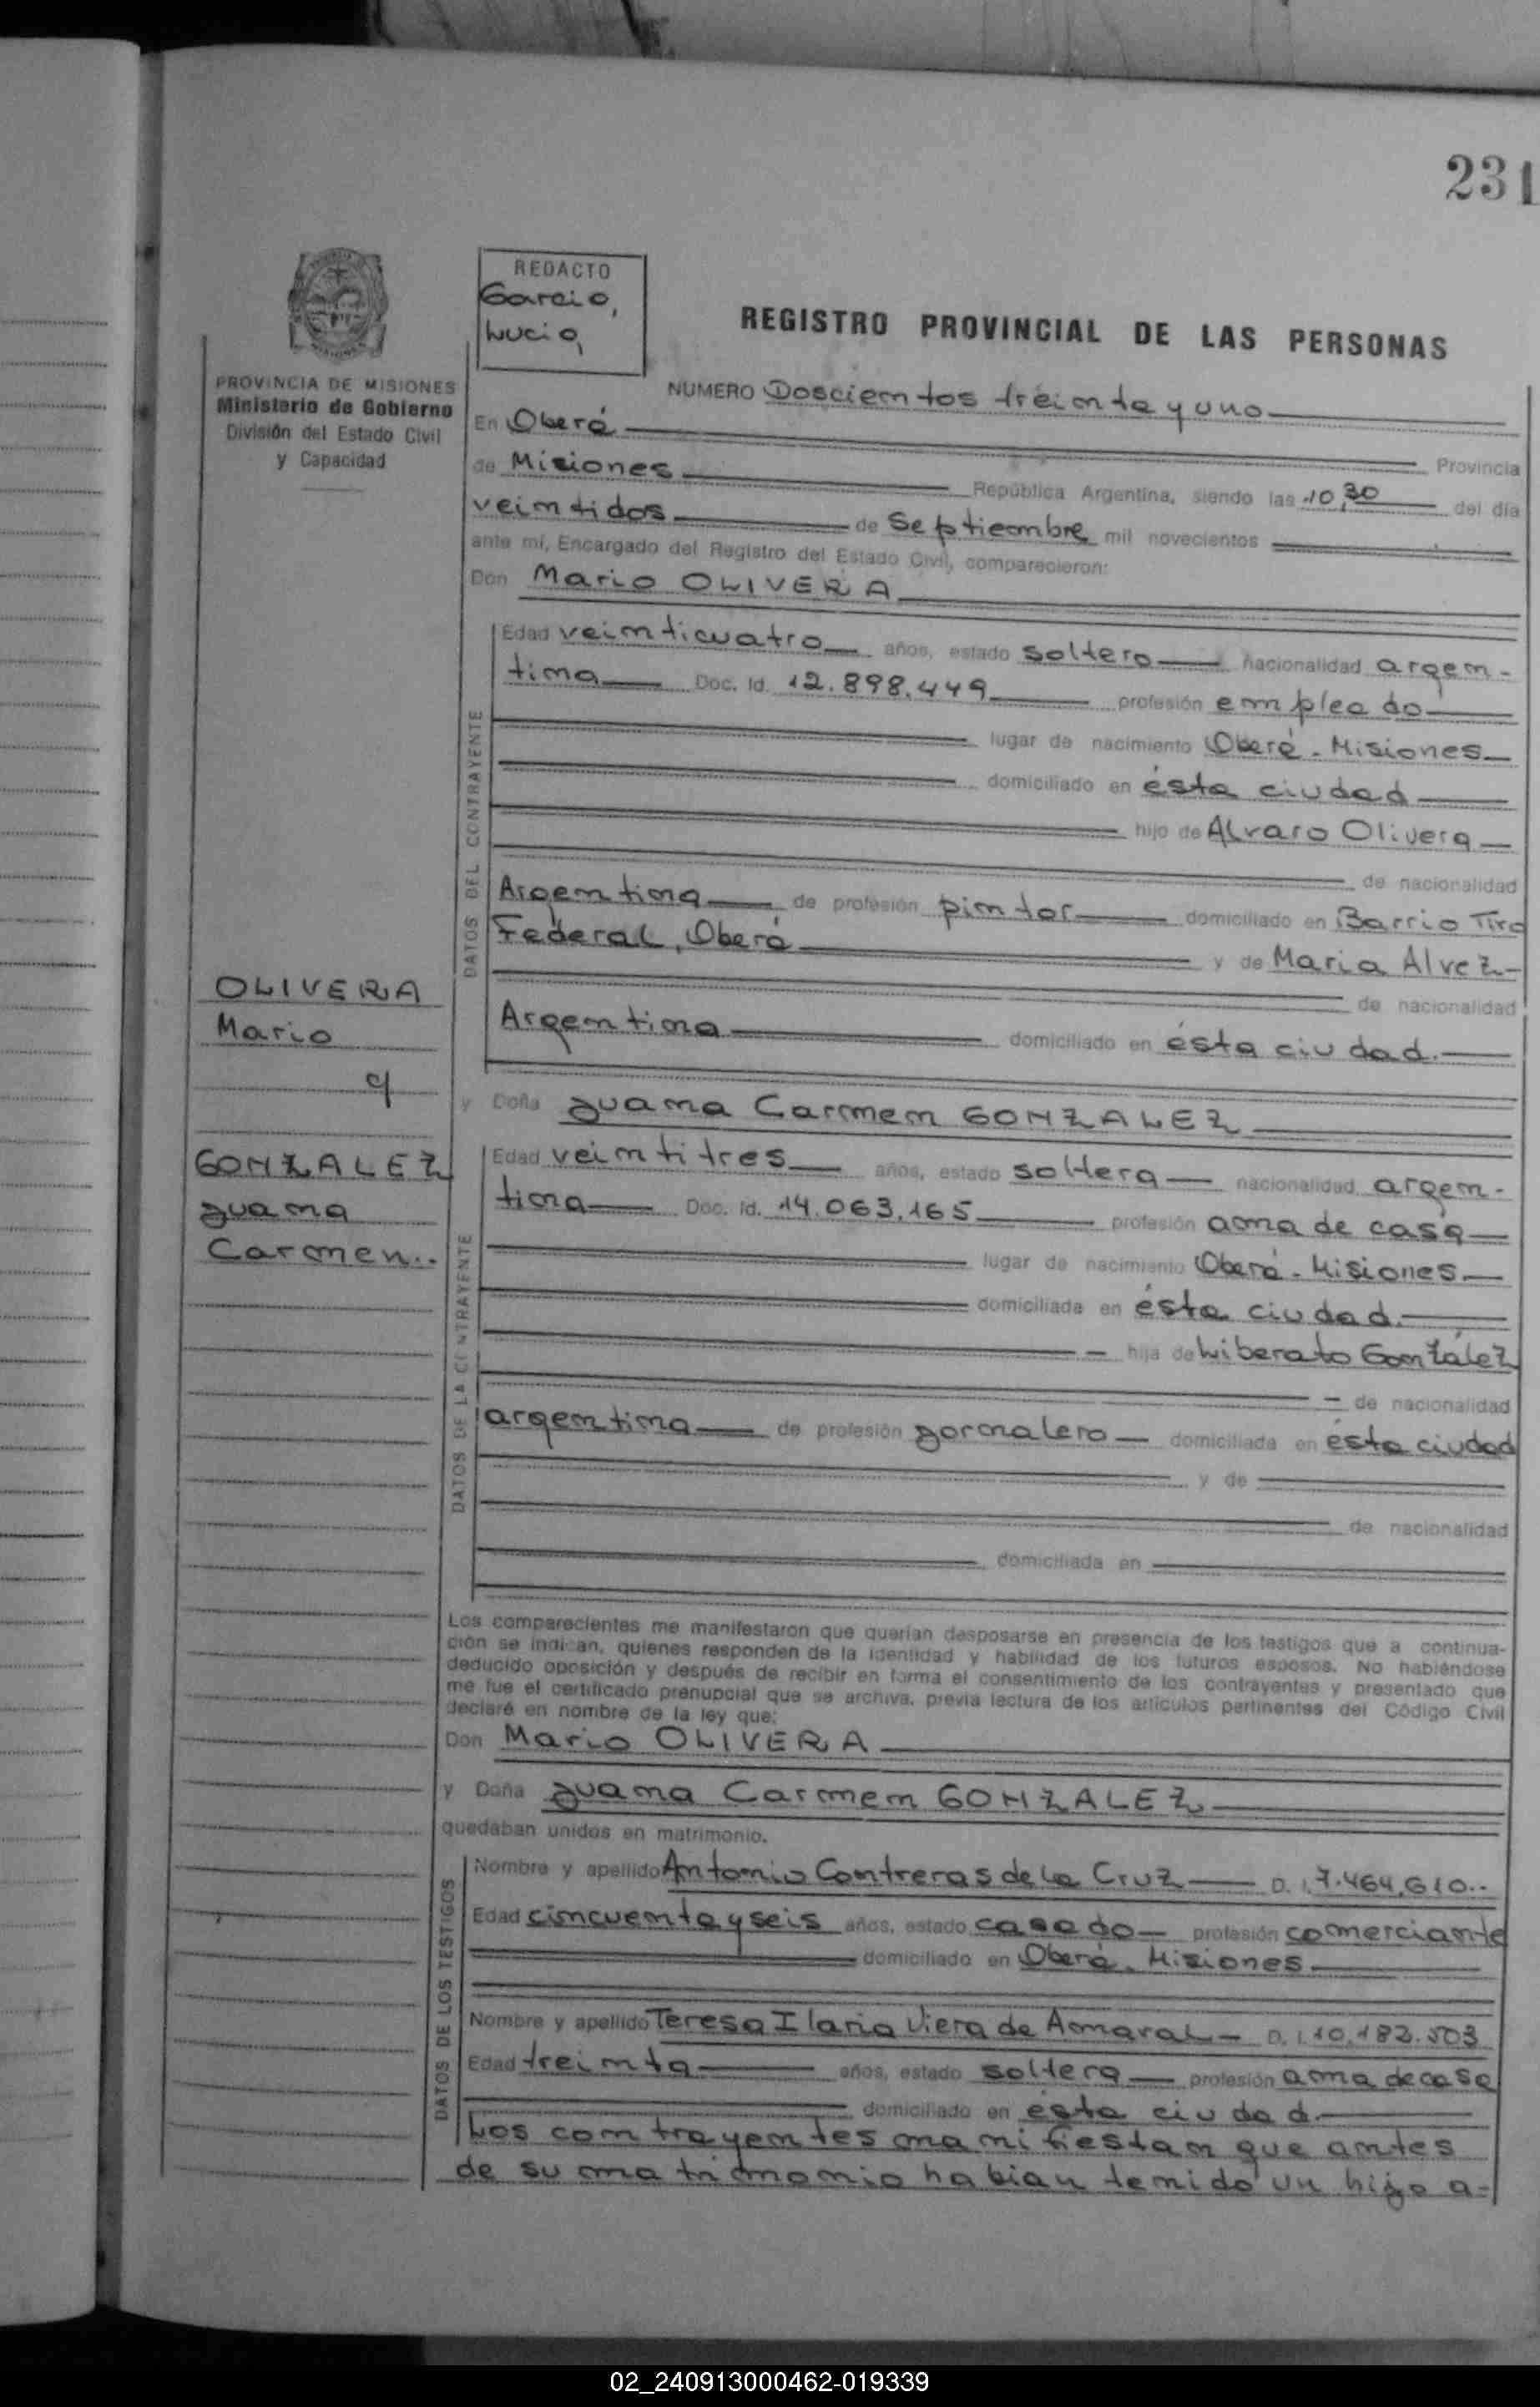 231
REDACTO
Garcia,
Lucia,
REGISTRO PROVINCIAL DE LAS PERSONAS
PROVINCIA DE MISIONES
Ministerio de Gobierno
División del Estado Civil
y Capacidad
NUMERO Doscientos treinta y uno
En Oberá
Provincia
de Misiones República Argentina, siendo las 10,30 del día
veintidos de Septiembre mil novecientos
ante mí, Encargado del Registro del Estado Civil, comparecieron:
Don Mario OLIVERA
DATOS DEL CONTRAYENTE
Edad veinticuatro años, estado soltero nacionalidad argen-
tina Doc. Id. 12.898.449 profesión empleado
lugar de nacimiento Oberá - Misiones
domiciliado en ésta ciudad
hijo de Alvaro Olivera
de nacionalidad
Argentina de profesión pintor domiciliado en Barrio Tiro
Federal, Oberá y de Maria Alvez
de nacionalidad
Argentina domiciliado en ésta ciudad.
OLIVERA
Mario
y
GONZALEZ
Juana
Carmen..
y Doña Juana Carmen GONZALEZ
DATOS DE LA CONTRAYENTE
Edad veintitres años, estado soltera nacionalidad argen-
tina Doc. Id. 14.063.165 profesión ama de casa
lugar de nacimiento Oberá - Misiones.
domiciliada en ésta ciudad.
hija de Liberato González
de nacionalidad
argentina de profesión jornalero domiciliada en ésta ciudad
y de
de nacionalidad
domiciliada en
Los comparecientes me manifestaron que querían desposarse en presencia de los testigos que a continua-
ción se indican, quienes responden de la identidad y habilidad de los futuros esposos. No habiéndose
deducido oposición y después de recibir en forma el consentimiento de los contrayentes y presentado que
me fue el certificado prenupcial que se archiva, previa lectura de los artículos pertinentes del Código Civil
declaré en nombre de la ley que:
Don Mario OLIVERA
y Doña Juana Carmen GONZALEZ
quedaban unidos en matrimonio.
DATOS DE LOS TESTIGOS
Nombre y apellido Antonio Contreras de La Cruz D. I. 7.464.610..
Edad cincuenta y seis años, estado casado profesión comerciante
domiciliado en Oberá - Misiones
Nombre y apellido Teresa Ilaria Viera de Amaral D. I. 10.182.503
Edad treinta años, estado soltera profesión ama de casa
domiciliado en ésta ciudad.
Los contrayentes manifiestan que antes
de su matrimonio habian tenido un hijo a-
02_240913000462-019339